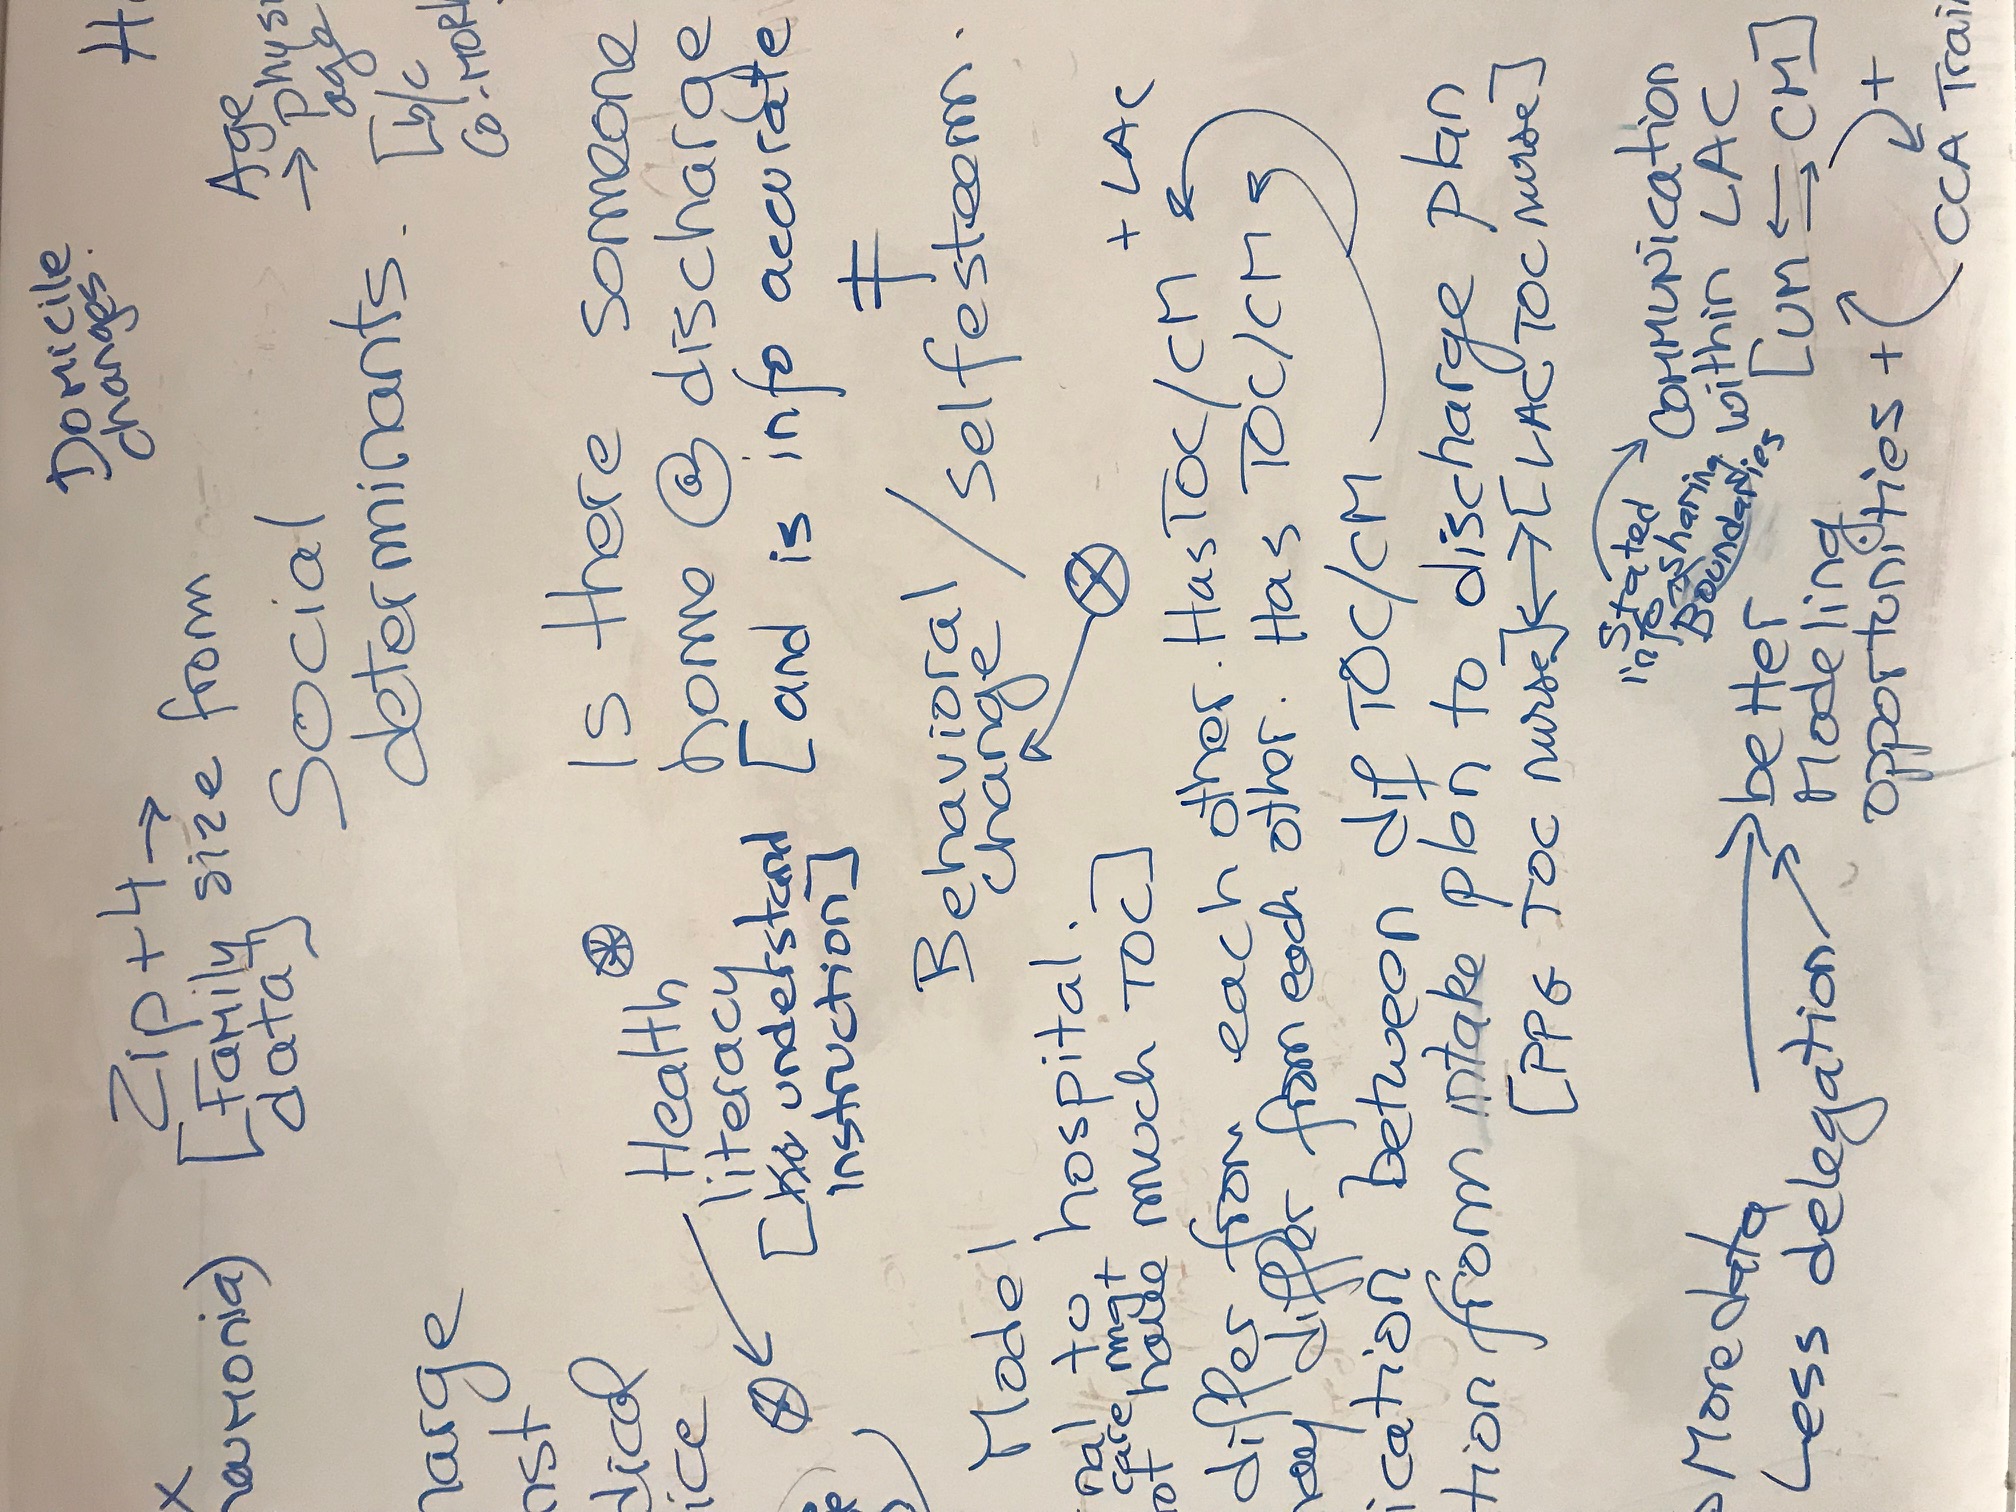 Domicile
changes.
H
Zip + 4 →
x
[Family size from
data]
monia)
Age
→ physi
age
[b/c
Co-MOR
Social
determinants.
harge
nst
dical
ice
Health
literacy
[understand
instruction]
Is there someone
home @ discharge
[and is info accurate
Behavioral / selfesteem.
change
Model
nal to hospital.
care mgt
ot have much TOC]
+ LAC
differ from each other. Has TOC/CM
ay differ from each other. Has TOC/CM
ication between dif TOC/CM
tion from intake plan to discharge plan
[PPG TOC nurse] ↔ [LAC TOC nurse]
Stated
info sharing
Boundaries
Communication
within LAC
[UM ⇆ CM]
More data → better
Less delegation Modeling
opportunities +
+
CCA Trai